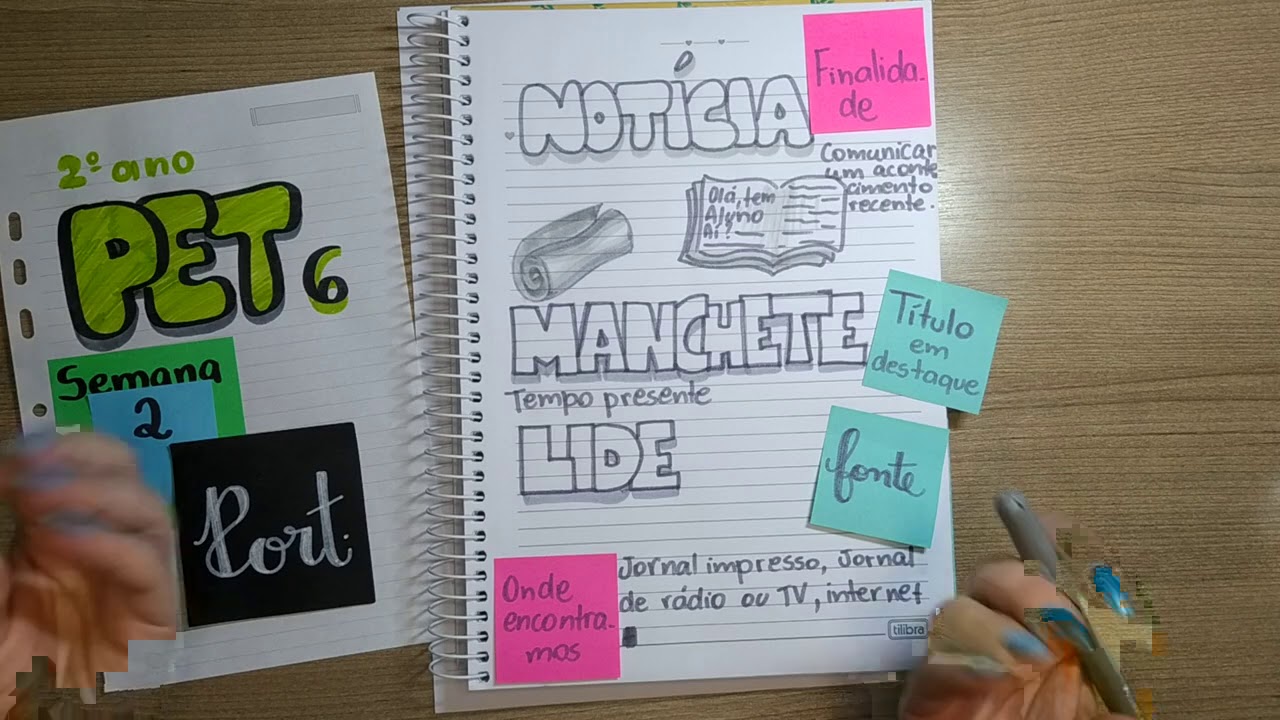 2º ano
PET 6
Semana
2
Port.
NOTÍCIA
Finalida-
de
Comunicar
um aconte
cimento
recente.
Olá, tem
Alguno
Aí?
MANCHETE
Título
em
destaque
Tempo presente
LIDE
fonte
Onde
encontra-
mos
Jornal impresso, Jornal
de rádio ou TV, internet
tilibra